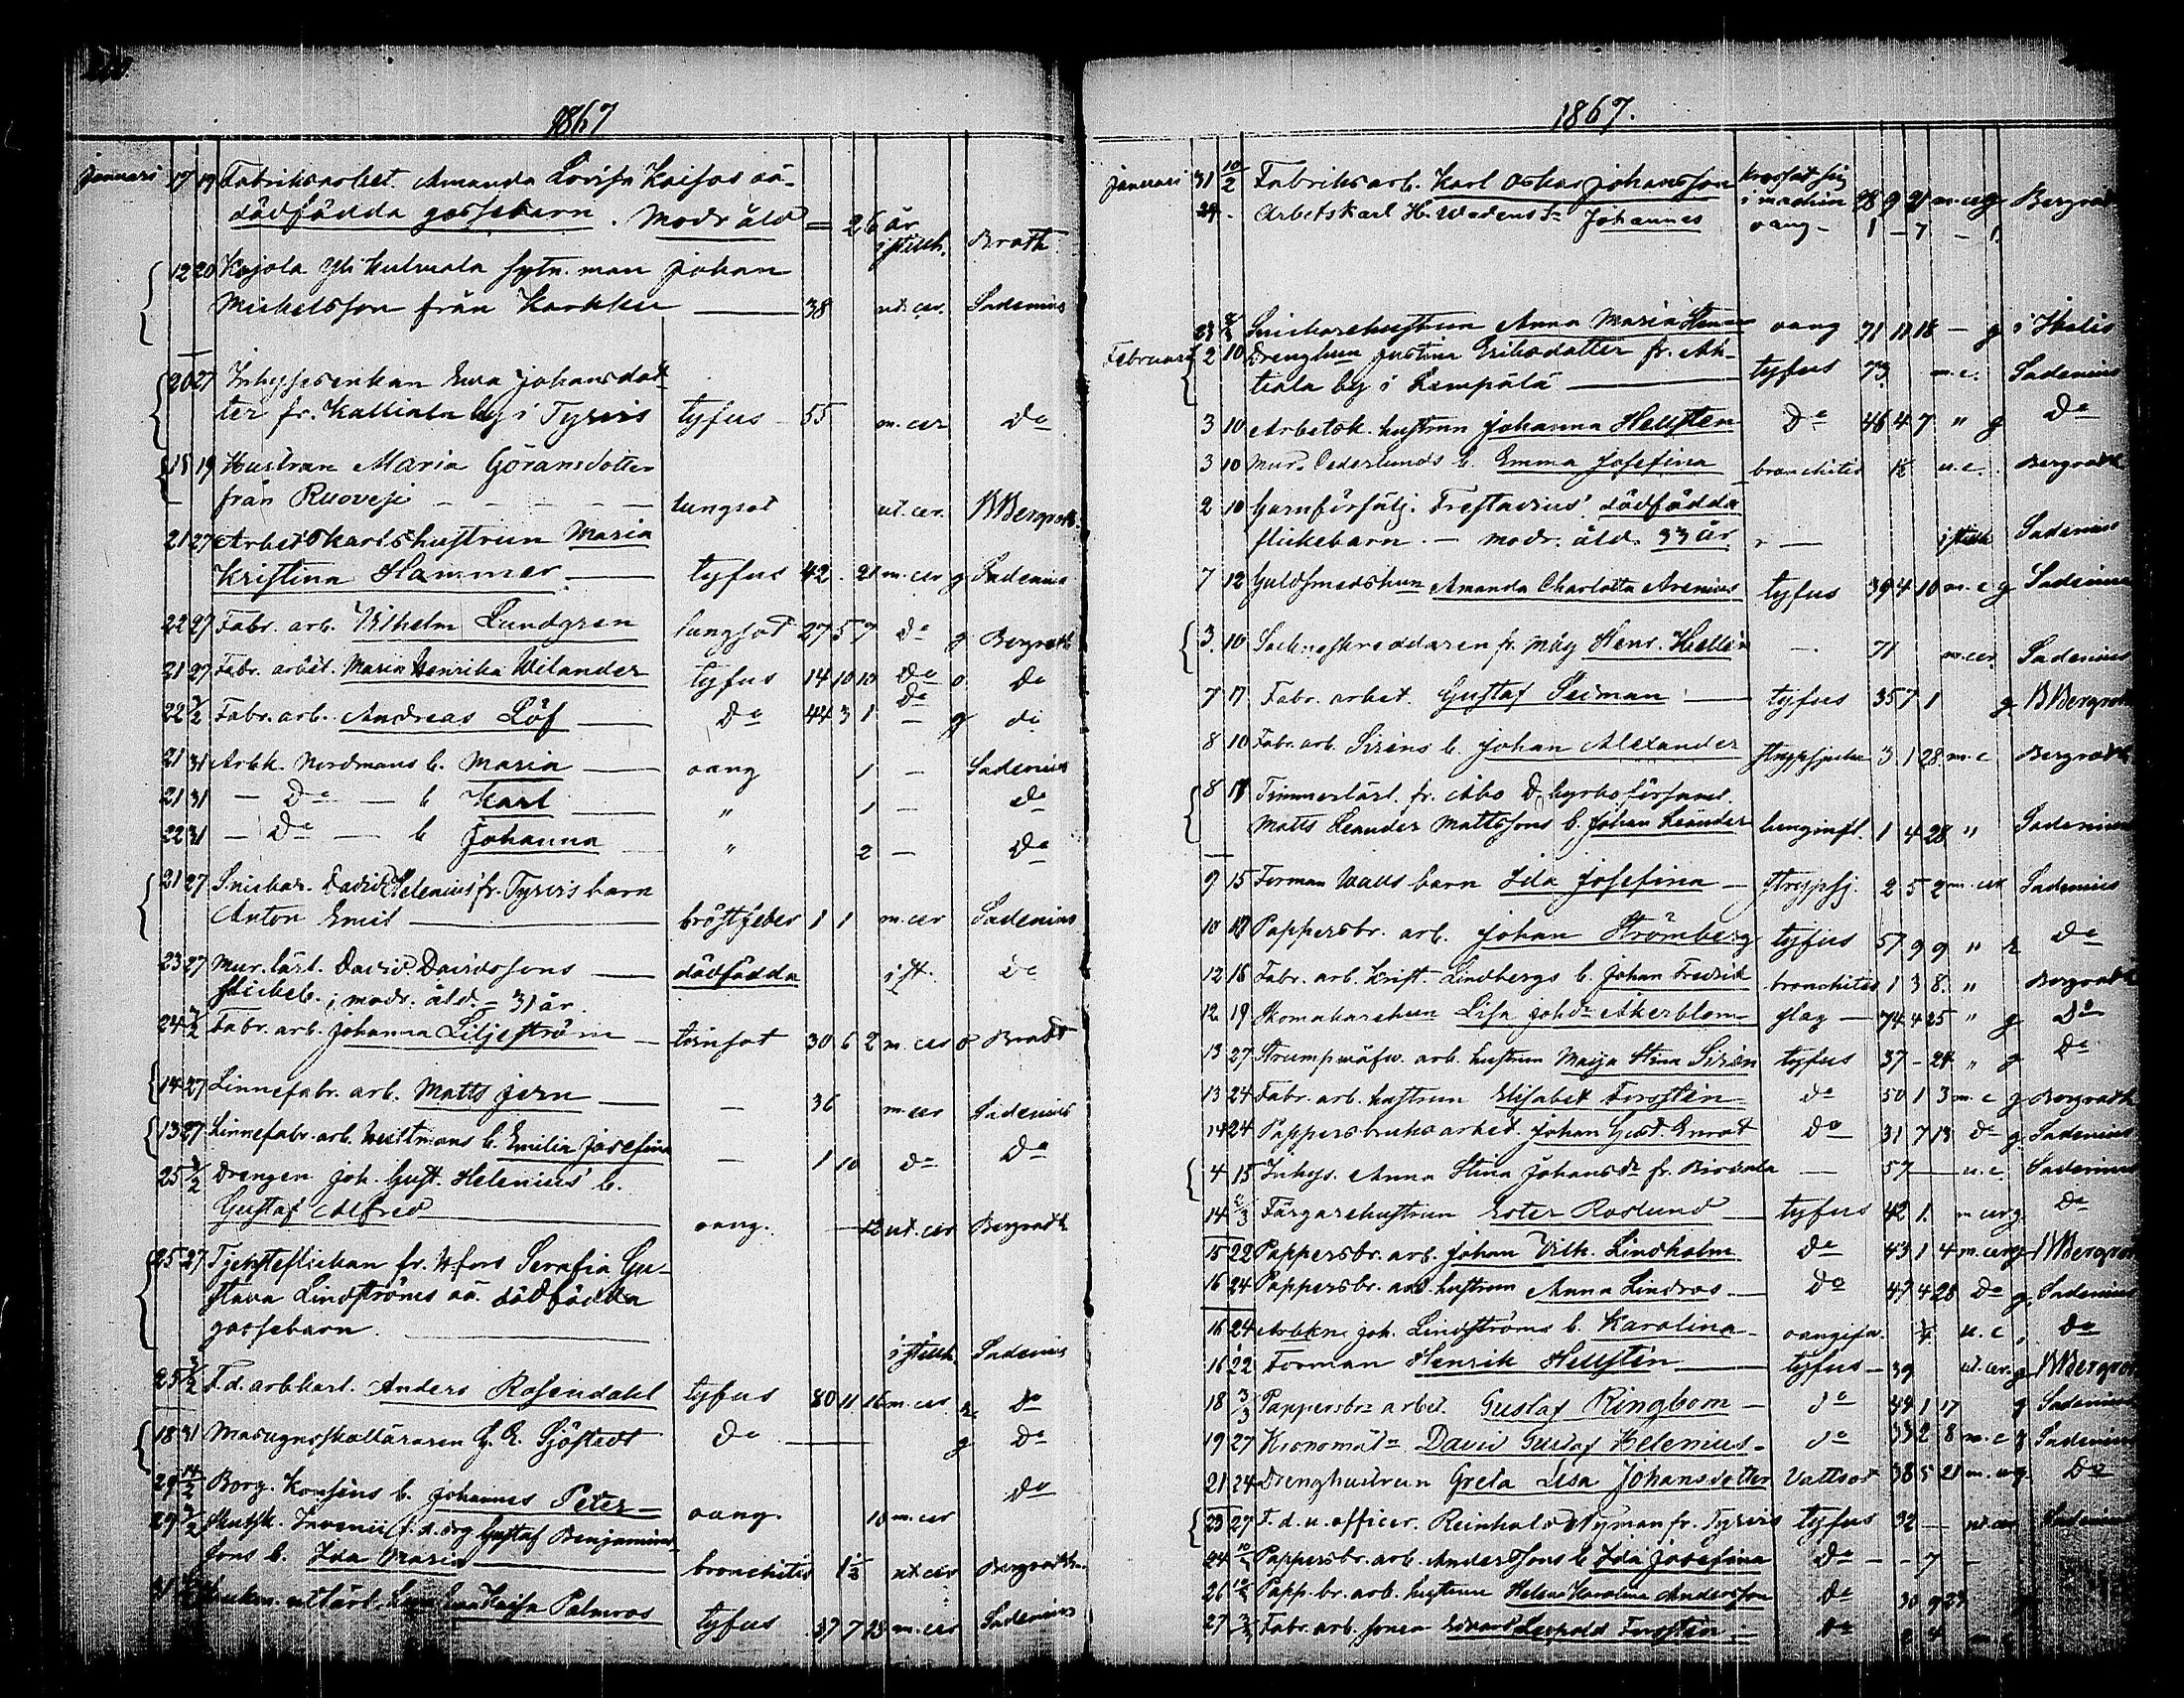 1867
Januari 17 19 Fabriksarbet. Amanda Lovisa Kaisas oä.
dödfödda gossebarn. Modr åld = 26 år
i stillh. Brath
12 20 Kojola Yli Kulmala sytn. man Johan
Michelsson från Karkku — 38 ut. cer. Sadenius
20 27 Inhysesenkan Ewa Johansdot-
ter fr. Kallala by i Tyrvis tyfus 55 m. cer Do
15 19 Hustrun Maria Göransdotter
från Ruovesi — lungsot ut. cer.
21 27 Arbetskarlshustrun Maria
Kristina Hammar — tyfus 42 . 21 m. cer g Sadenius
22 27 Fabr. arb. Wilhelm Lundgren lungsot 27 5 7 Do g Bergroth
21 27 Fabr. arbet. Maria Henrika Wilander tyfus 14 10 10 Do o Do
22 3/2 Fabr. arb. Andreas Löf — Do 44 3 1 Do — g do
21 31 Arbk. Nordmans b. Maria — oang 1 — Sadenius
21 31 — Do — b Karl — " 1 — do
22 31 — Do — b Johanna — " 2 — Do
21 27 Snickar. David Helenius' fr. Tyrvis barn
Anton Emil — bröstfeber 1 1 m. cer Sadenius
23 27 Mur. lärl. David Davidssons — dödfödda i st. Do
flickeb.; modr. åld. = 31 år.
24 3/2 Fabr. arb. Johanna Liljeström — tvinsot 30 6 2 m. cer o
14 27 Linnefabr. arb. Matts Jern — — 36 m. cer Sadenius
13 27 Linnefabr. arb. Westmans b. Emilia Josefina — 1 10 do Do
25 3/2 Drengen Joh. Gust. Helenius' b.
Gustaf Alfred — oang. — 12 ut. cer Bergroth
25 27 Tjensteflickan fr. H:fors Serafia Gu-
stava Lindströms oä. dödfödda
gossebarn. — i stillh. Sadenius
25 3/2 F.d. arbkarl. Anders Rosendahl tyfus 80 11 16 m. cer Do
18 31 Masugnsskolläraren Sjöstedt Do — g Do
29 14/2 Borg. Konsins b. Johannes Peter — oang. 10 m. cer Do
29 3/2 Gustaf Benjamins-
sons b. Ida Maria — bronchitis 1 1/2 ut cer Bergroth
31 Kaisa Palmros tyfus 37 7 23 m. cer Sadenius
1867.
Januari 31 10/2 Fabriksarb. Karl Oskar Johansson krossat sig
i machin 28 9 21 m. cer g Bergroth
29 . Arbetskarl H. Wadens s. Johannes oang — 1 — 7 —
23 Snickarehustrun Anna Maria — oang 71 11 18 — g i Italis
Februari 2 10 Drenghun Justina Eriksdotter fr. Ah-
tiala by i Lempälä — tyfus 73 m. c. Sadenius
3 10 Arbetsk. hustrun Johanna Hellsten Do 46 4 7 " g Do
3 10 Mur. Cederlunds b. Emma Josefina bronchitis 1/2 u. c. Bergroth
2 10 Garnförsälj. Frestadius' dödfödda
flickebarn. — modr. åld. 33 år — i stillh Sadenius
7 12 Guldsmedshun Amanda Charlotta Arenius tyfus 39 4 10 m. c g Sadenius
3 10 Sockneskreddaren fr. Hens. Hellen — 71 m. cer Sadenius
7 17 Fabr. arbet. Gustaf Seiman — tyfus 35 7 1 g Bergroth
8 10 Fabr. arb. Siréns b. Johan Alexander strypsjuka 3 1 28 m. c Bergroth
8 18 Timmerlärl. fr. Åbo D. kyrko församl.
Matts Leander Mattssons b. Johan Leander lunginfl. 1 4 28 " Sadenius
9 15 Forman Walls barn Ida Josefina — strypsj. 2 5 2 m. cer Sadenius
10 18 Pappersbr. arb. Johan Strömberg tyfus 57 9 9 " Do
12 16 Fabr. arb. Krist. Lindbergs b. Johan Fredrik bronchitis 1 3 8 " Bergroth
12 19 Skomakarehun Lisa Johdr Åkerblom slag — 74 4 25 " g Do
13 27 Strumpwäfv. arb. hustrun Maja Stina Sirén tyfus 37 — 24 " g Do
13 24 Fabr. arb. hustrun Elisabet Forstén do 50 1 3 m. c g Bergroth
14 24 Pappersbruksarbet. Johan Gust. Enrot Do 31 7 13 Do g Sadenius
4 15 Inhys. Anna Stina Johansdr fr. Birkala — 57 — u. c. Sadenius
14 2/3 Färgarehustrun Ester Roslund — tyfus 42 1. m cer g. Do
15 22 Pappersbr. arb. Johan Vilh. Lindholm Do 43 1 4 m. cer g Bergroth
16 24 Pappersbr. arb. hustrun Anna Lindros — Do 47 4 28 Do g. Sadenius
16 24 Arbkn Joh. Lindströms b. Karolina — oangifv. 1/4 u. c Do
16 22 Forman Henrik Hellstén — tyfus — 39 ut. cer. g Bergroth
18 3/3 Pappersbr. arbet. Gustaf Ringbom — do 44 1 17 g Sadenius
19 27 Kronomåln David Gustaf Helenius — do 33 2 8 m. c g Sadenius
21 24 Drenghustrun Greta Lisa Johansdotter Vattsot 38 5 21 m. c g. Do
23 27 F.d. u. officer. Reinhold Nyman fr. Tyrvis tyfus 32 — ut cer Sadenius
24 Pappersbr. arb. Anderssons b Ida Josefina Do — — 7 —
26 Papp. br. arb. hustrun Helena Karolina Andersson Do 30 9 23
27 Fabr. arb. sonen Edvard Leopold Forstén — Do